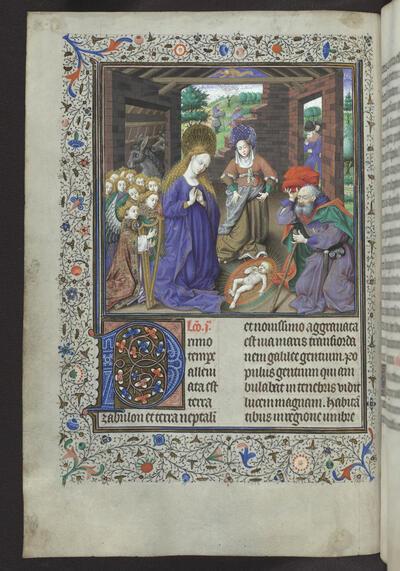 Lc̄o. p̄.
Primo
tempo
re alleui
ata est
terra
zabulon et terra neptali
et nouissimo aggrauata
est uia maris trans iorda
nem galilee gentium. po
pulus gentium qui am
bulabat in tenebris vidit
lucem magnam. habita
tibus in regione umbre